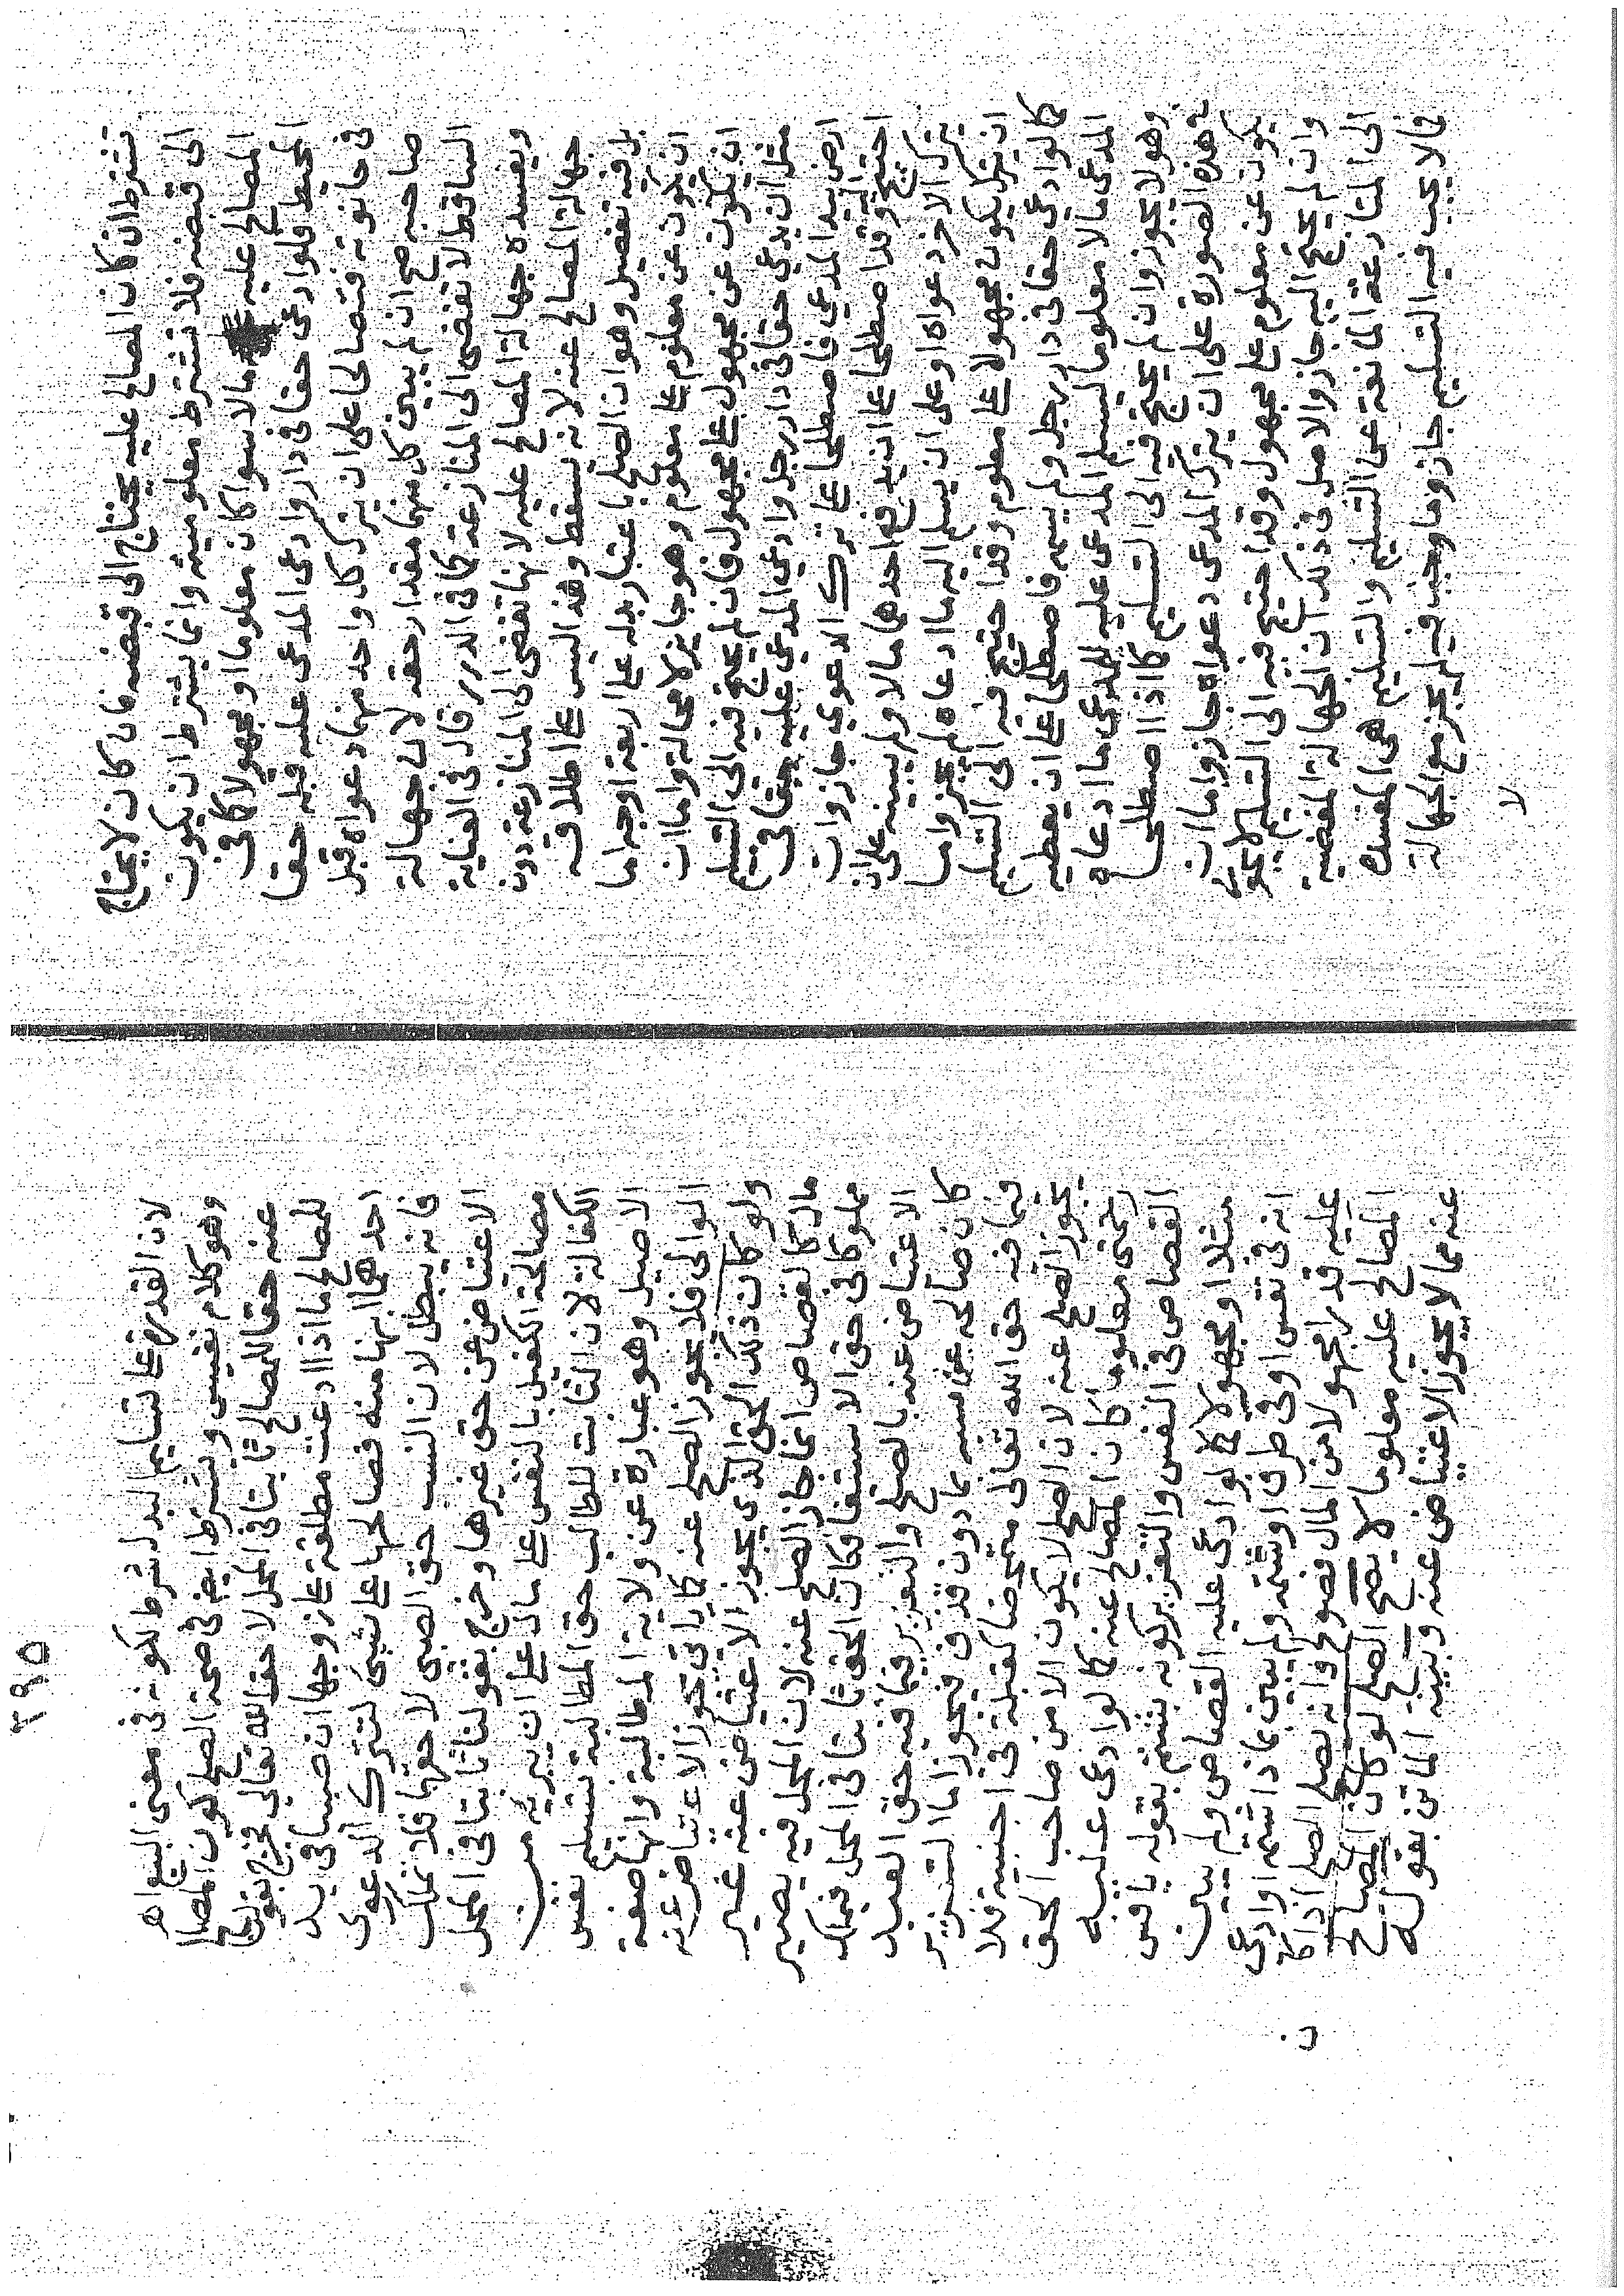 تشترط ان كان المصالح عليه يحتاج الى قبضه فان كان لا يحتاج
الى قبضه فلا تشترط معلوميته وانما يشترط ان يكون
المصالح عليه مالا سوا كان معلوما او مجهولا كما فى
المحيط فلو ادعى حقا فى دار وادعى المدعى عليه قبله حقا
فى حانوته فتصالحا على ان يترك كل واحد منهما دعواه قبل
صاحبه صح ان لم يبين كل منهما مقدار حقه لان جهالة
الساقط لا تفضى الى المنازعة كما فى الدرر قال فى العناية
ويفسده جهالة المصالح عليه لانها تفضى الى المنازعة دون
جهالة المصالح عنه لانه يسقط وهذا ليس على اطلاقه
بل فيه تفصيل وهو ان الصلح باعتبار بدله على اربعة اوجه اما
ان يكون عن معلوم على معلوم وهو جايز لا محالة واما ان
ان يكون عن مجهول على مجهول فان لم يحتج فيه الى التسليم
مثل ان يدعى حقا فى دار رجل وادعى المدعى عليه حقا فى
ارض بيد المدعي فاصطلحا على ترك الدعوي جاز وان
احتيج اليه وقد اصطلحا على ان يدفع احدهما مالا ولم يبينه على ان
يترك الاخر دعواه او على ان يسلم اليه ما ادعاه لم يجز واما
ان يكون مجهولا على معلوم وقد احتيج فيه الى التسليم
كما لو ادعى حقا فى دار رجل ولم يسمه فاصطلحا على ان يعطيه
المدعى مالا معلوما ليسلم المدعى عليه للمدعى ما ادعاه
وهو لا يجوز وان لم يحتج فيه الى التسليم كما اذا اصطلحا
فى هذه الصورة على ان يترك المدعى دعواه جاز واما ان
يكون عن معلوم على مجهول وقد احتيج فيه الى التسليم لا يجوز
وان لم يحتج اليه جاز والاصل فى ذلك ان الجهالة المفضية
الى المنازعة المانعة عن التسليم والتسلم هى المفسدة
فما لا يجب فيه التسليم جاز وما وجب فيه لم يجز مع الجهالة
لا
٣٩٥
لان القدرة على تسليم البدل شرط لكونه فى معنى البيع اهـ
وهو كلام نفيس وشرط ايضا فى صحة الصلح كون المصالح
عنه حقا للمصالح ثابتا فى المحل لا حقا لله تعالى فخرج بقولنا
للمصالح ما اذا ادعت مطلقة على زوجها ان صبيا فى يد
احدهما ابنها منه فصالحها على شيئ لتترك الدعوى
فانه يبطل لان النسب حق الصبى لا حقها فلا تملك
الاعتياض عن حق غيرها وخرج بقولنا ثابتا فى المحل
مصالحة الكفيل بالنفس على مال على ان يبريه من
الكفالة لان الثابت للطالب حق المطالبة بتسليم نفس
الاصيل وهو عبارة عن ولاية المطالبة وانها صفة
الوالى فلا يجوز الصلح عنه كما ياتى تجوز الاعتياض عنه
ولو كان ذلك الحق الذى يجوز الاعتياض عنه غير
مال كالقصاص انما جاز الصلح عنه لان المحل فيه يصير
مملوكا فى حق الاستيفا فكان الحق ثابتا فى المحل فيملك
الاعتياض عنه بالصلح والتعزير فيما فيه حق العبد
كان صالحه عن سبه بما دون قذف فيجوز اما التعزير
فيما فيه حق الله تعالى متمحضا كقبلة فى اجنبية فلا
يجوز الصلح عنه لان الصلح لا يكون الا من صاحب الحق
وحتى معلوما كان المصالح عنه كما لو ادعى عليه
القصاص فى النفس والتعزير كونه بشتم بقوله يا فاسق
مثلا او مجهولا كما لو ادعى عليه القصاص ولم يبين
انه فى نفس او فى طرف او شتمه ولم يبين بماذا شتمه او ادعى
عليه قدرا مجهولا من المال فصولح فانه يصح الصلح اذا كان
المصالح عليه معلوما لا يصح الصلح لو كان المصالح
عنه مما لا يجوز الاعتياض عنه وبينه الماتن بقوله